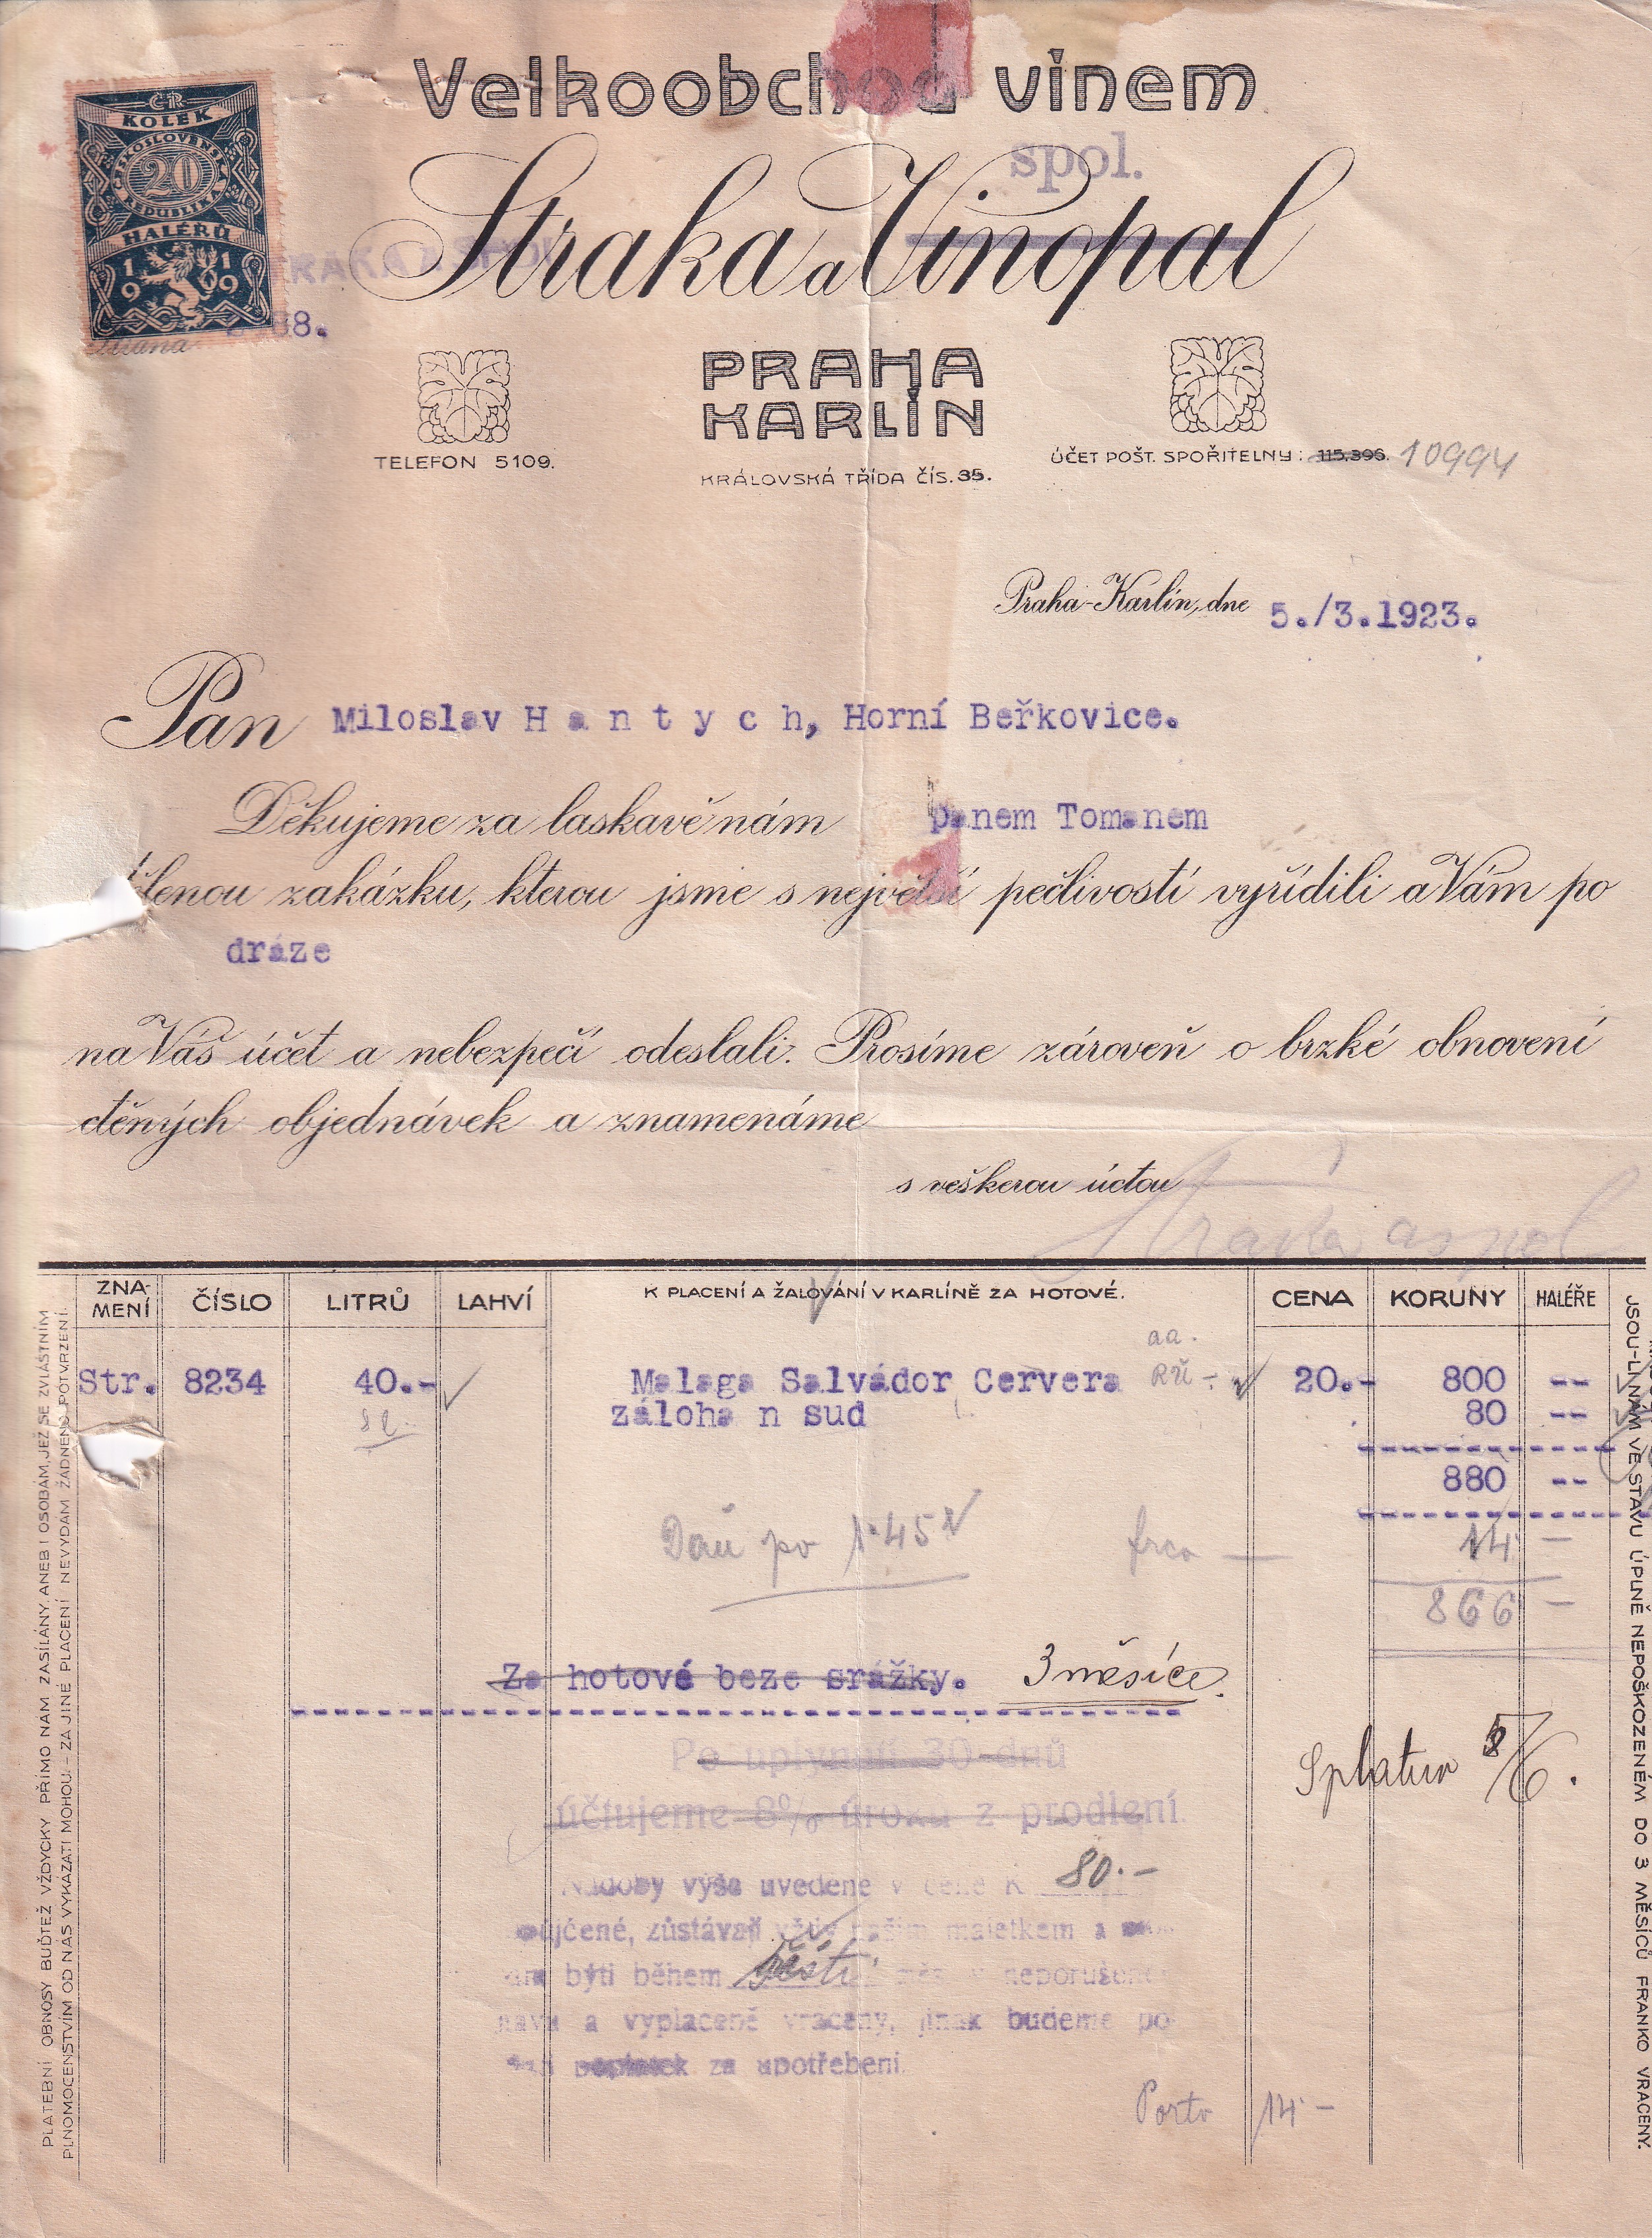 Velkoobchod vinem
spol.
Straka a Vinopal
ČR
KOLEK
ČESKOSLOVENSKÁ
20
REPUBLIKA
HALÉŘŮ
1919
KA A SPOL
88.
PRAHA
KARLÍN
TELEFON 5109.
KRÁLOVSKÁ TŘÍDA ČÍS. 35.
ÚČET POŠT. SPOŘITELNY: 115.396. 10994
Praha-Karlín, dne 5./3.1923.
Pan Miloslav H a n t y c h, Horní Beřkovice.
Děkujeme za laskavě nám panem Tomanem
dělenou zakázku, kterou jsme s největší pečlivostí vyřídili a Vám po
dráze
na Váš účet a nebezpečí odeslali. Prosíme zároveň o brzké obnovení
ctěných objednávek a znamenáme
s veškerou úctou
Straka a spol
ZNA-
MENÍ
ČÍSLO
LITRŮ
LAHVÍ
K PLACENÍ A ŽALOVÁNÍ V KARLÍNĚ ZA HOTOVÉ.
CENA
KORUNY
HALÉŘE
aa.
Str. 8234 40.- Malaga Salvádor Cervera 20.- 800 --
záloha n sud 80 --
880 --
po 1·45 frco — 14 —
866 —
Za hotové beze srážky. 3 měsíce.
Po uplynutí 30 dnů
účtujeme 8% úroku z prodlení.
Splatno 5/6.
Nádoby výše uvedené v ceně K 80.-
půjčené, zůstávají vždy naším majetkem a
býti během šesti neporušeném
a vyplaceně vráceny, jinak budeme po-
poplatek za upotřebení.
Porto 14 -
PLATEBNÍ OBNOSY BUĎTEŽ VŽDYCKY PŘÍMO NÁM ZASÍLÁNY, ANEB I OSOBÁM, JEŽ SE ZVLÁŠTNÍM
PLNOMOCENSTVÍM OD NÁS VYKÁZATI MOHOU. – ZA JINÉ PLACENÍ NEVYDÁM ŽÁDNÉHO POTVRZENÍ.
JSOU-LI NÁM VE STAVU ÚPLNĚ NEPOŠKOZENÉM DO 3 MĚSÍCŮ FRANKO VRÁCENY.